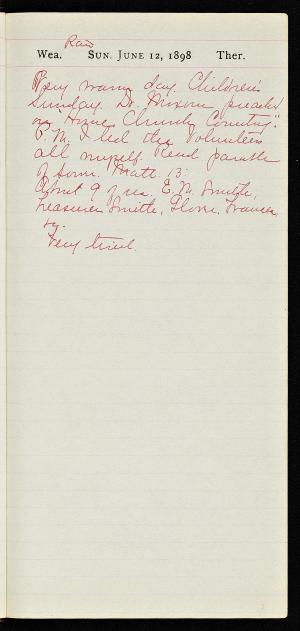 Rain
Wea. SUN. JUNE 12, 1898 Ther.
Very warm day. Children's
Sunday. Dr. preached
on "Home, Church, Country."
P.M. I led the Volunteers
all myself. Read parable
of Matt. 13:
About 9 of us. E. M. Smith,
Treasurer Smith, Frances,
Very tired.